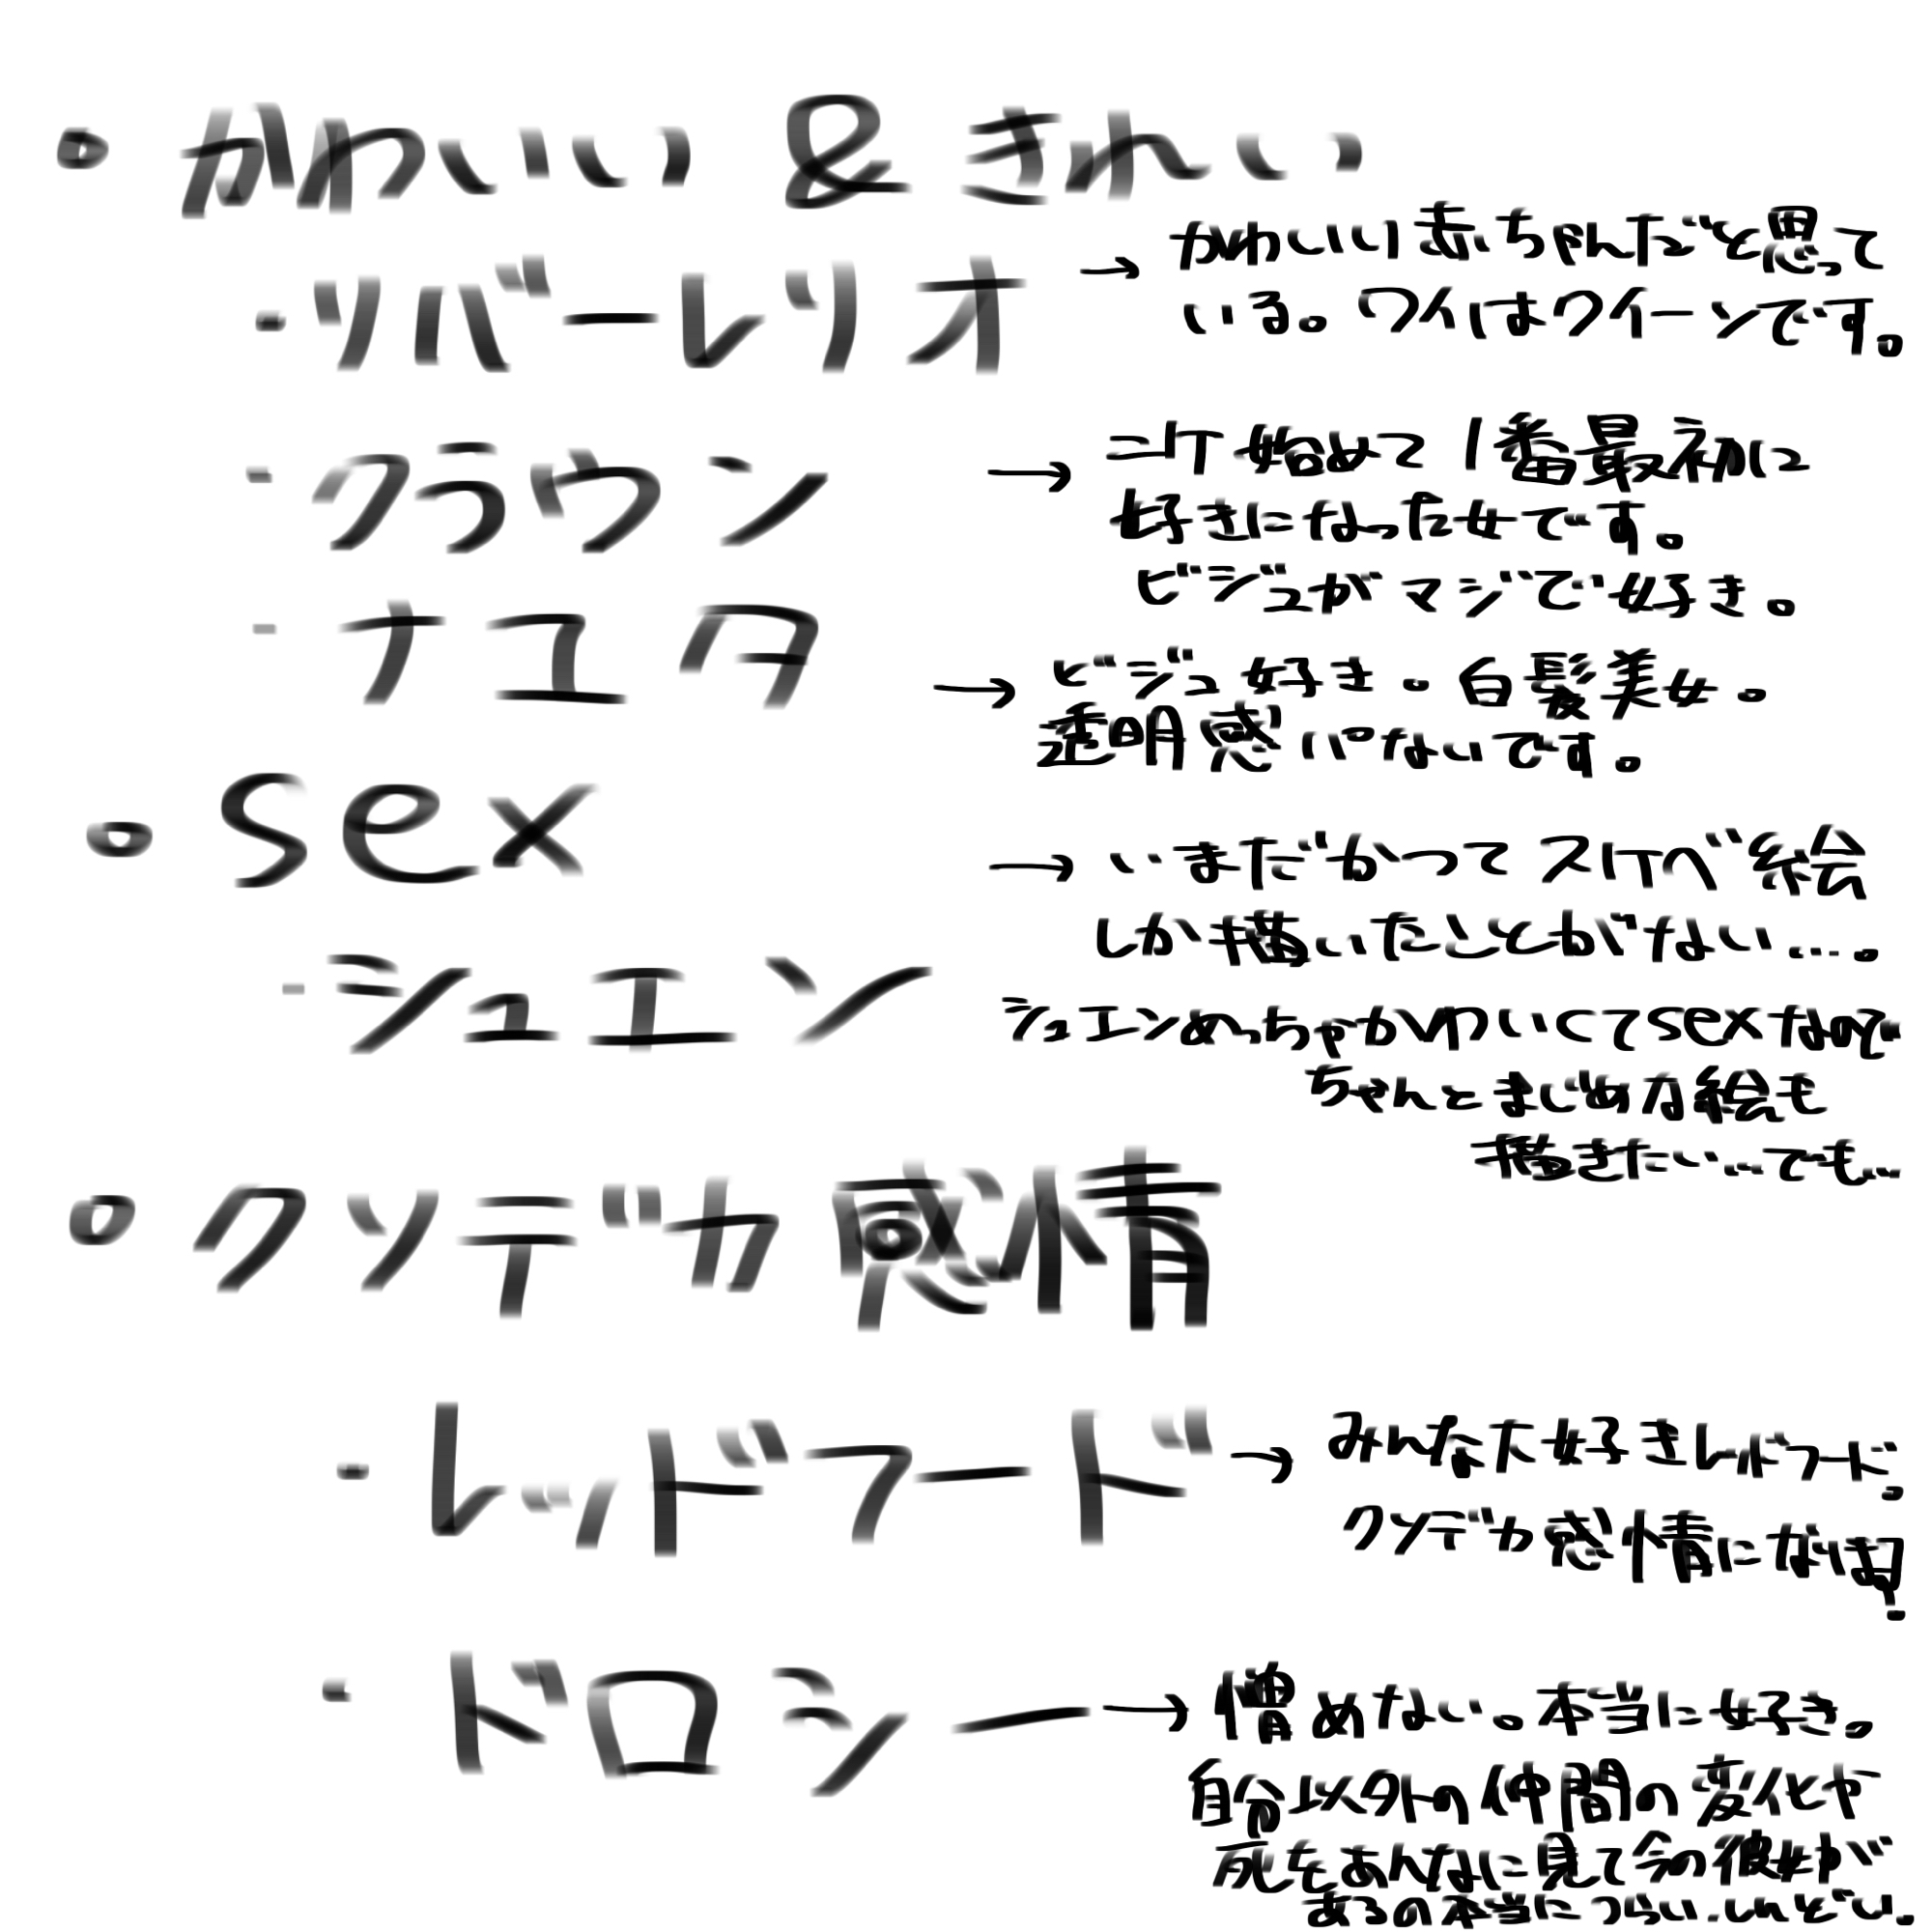 かわいい & きれい
・リバーレリオ
→ かわいい赤ちゃんだと思って
いる。ワイはクイーンです。
・クラウン
→ ニケ始めて1番最初に
好きになった女です。
ビジュがマジで好き。
・ナユタ
→ ビジュ好き。白髪美女。
透明感パないです。
sex
→ いまだかつてスケベ絵
しか描いたことがない...。
・シュエン
シュエンめっちゃかわいくてsexなので
ちゃんとまじめな絵も
描きたい...でも...
クソデカ感情
・レッドフード
→ みんな大好きレッドフード。
クソデカ感情になるほ
・ドロシー
→ 憎めない。本当に好き。
自分以外の仲間の変化や
死をあんなに見て今の彼女が
あるの本当につらい.しんどい。